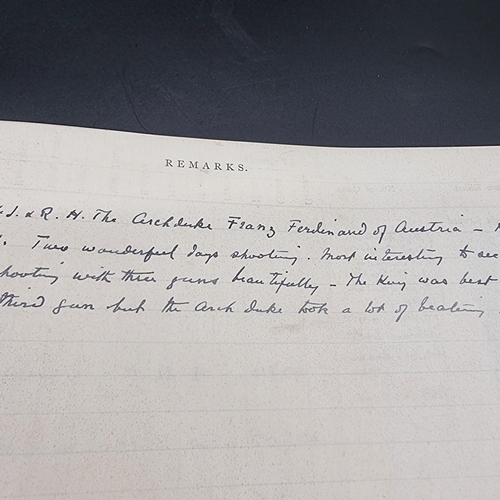 REMARKS.
I. & R. H. The Archduke Franz Ferdinand of Austria –
Two wonderful days shooting. Most interesting to see
shooting with their guns beautifully – The King was best
third gun but the Arch Duke took a lot of beating